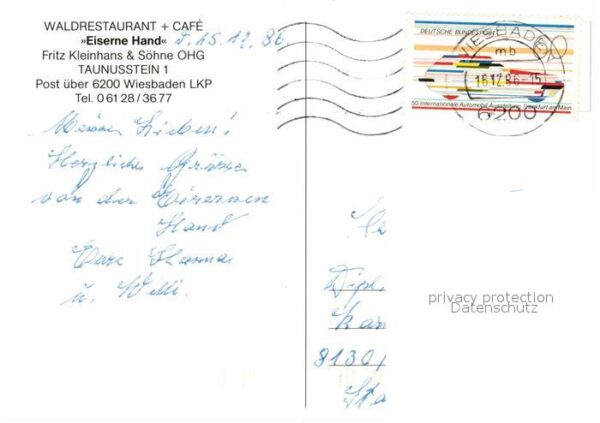 WALDRESTAURANT + CAFÉ
»Eiserne Hand«
Fritz Kleinhans & Söhne OHG
TAUNUSSTEIN 1
Post über 6200 Wiesbaden LKP
Tel. 0 61 28 / 36 77
15.12.86
DEUTSCHE BUNDESPOST
50. Internationale Automobil-Ausstellung Frankfurt am Main
WIESBADEN
mb
16.12.86-15
6200
Meine Lieben!
Herzliche Grüsse
von der Eisernen
Hand
Eure
u. Willi.
Dipl.
8130/
privacy protection
Datenschutz